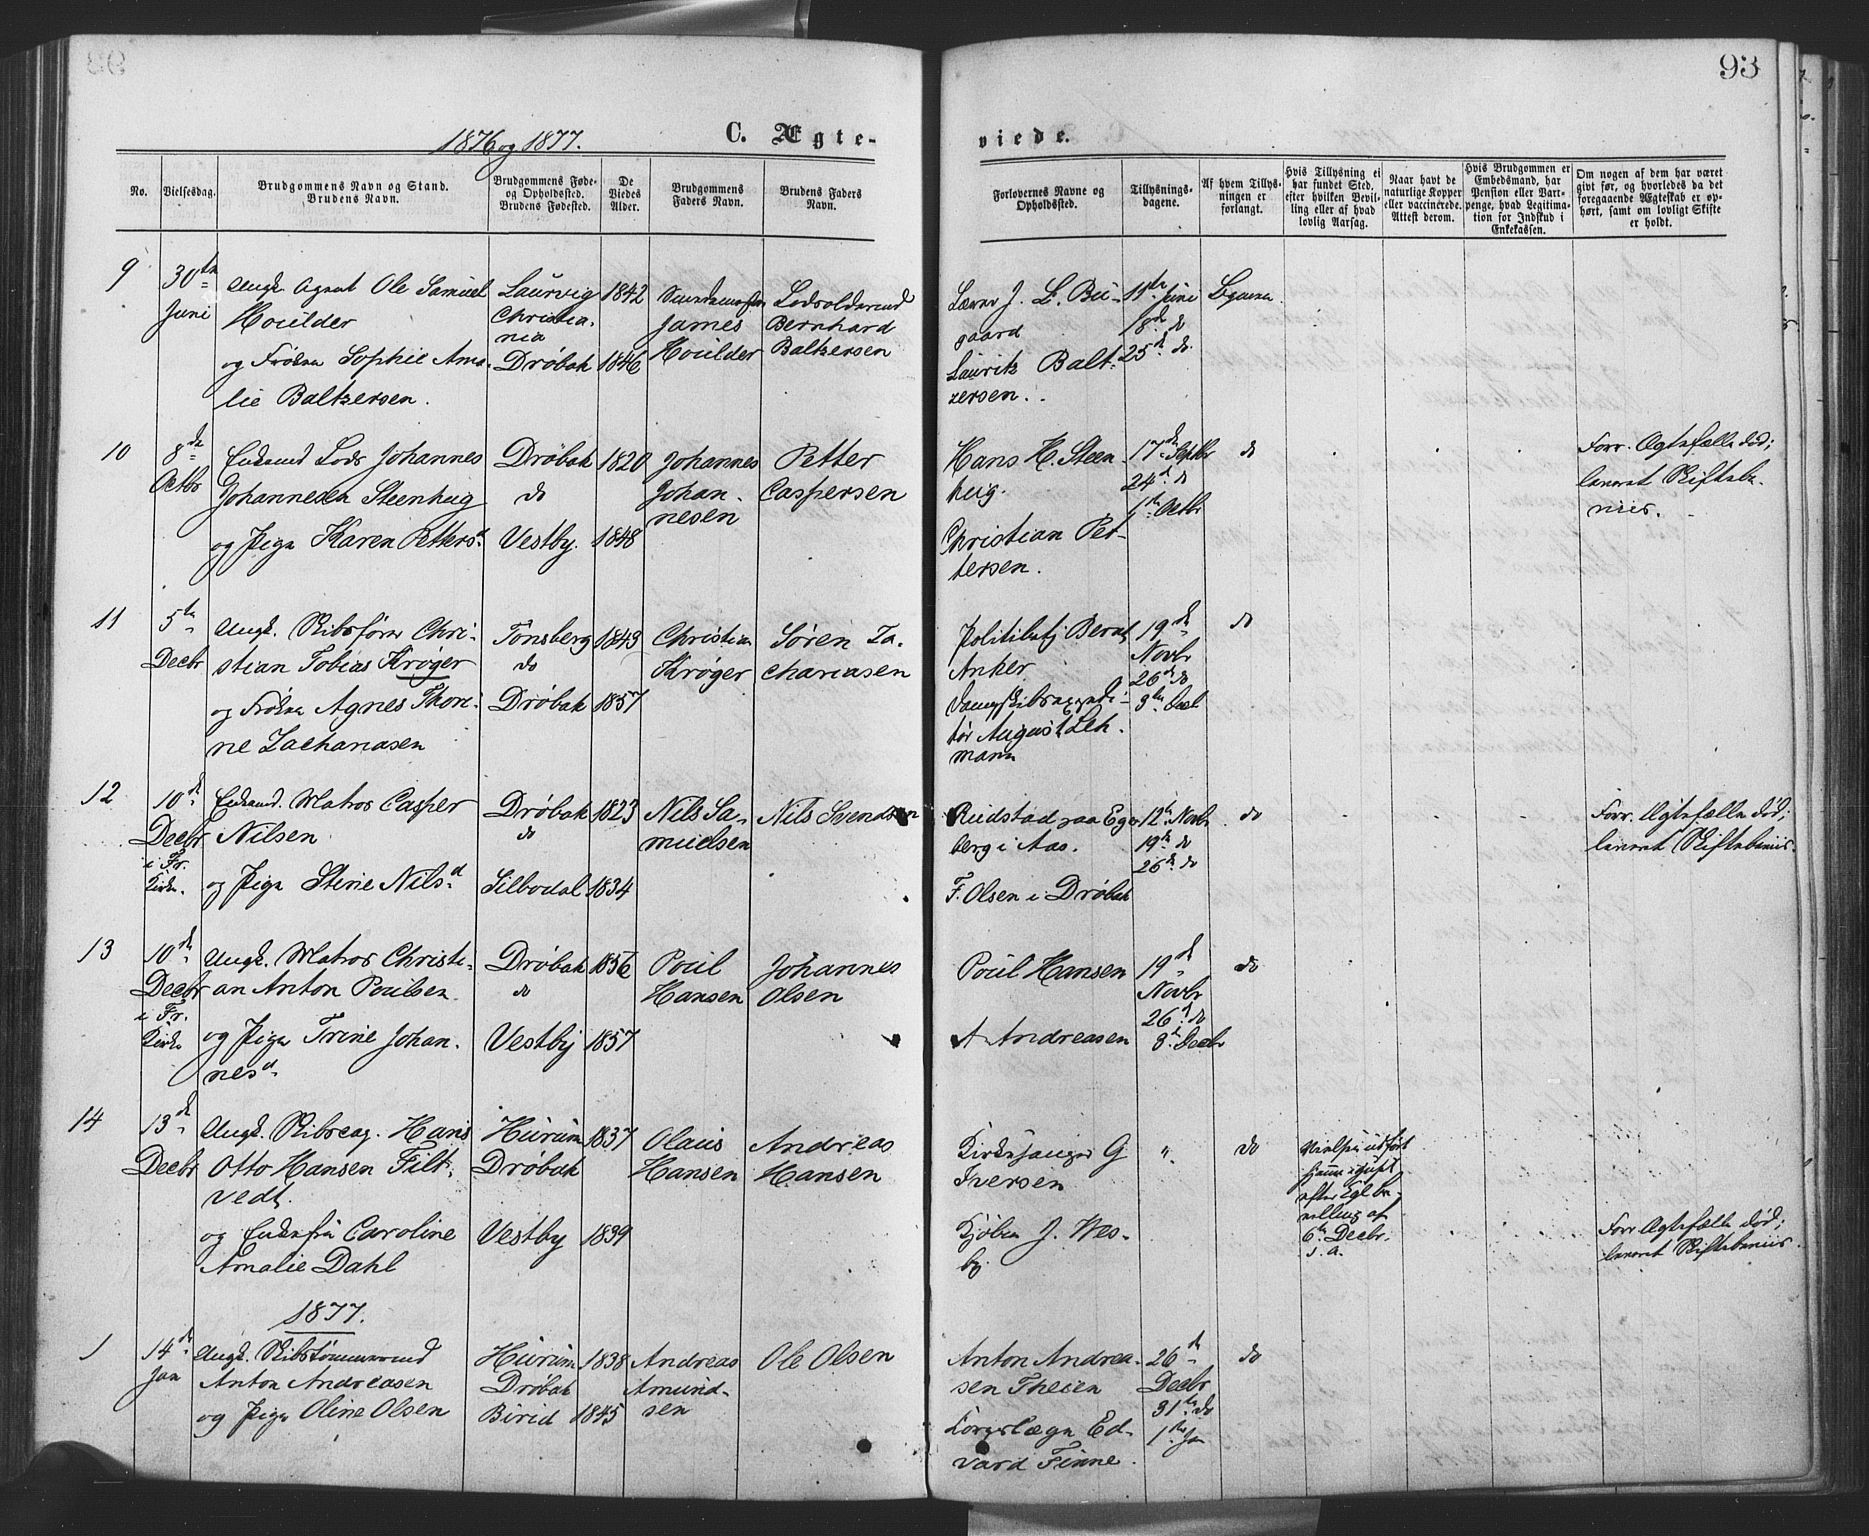 93
1876 og 1877.
C. Ægte-
viede.
No.
Vielsesdag.
Brudgommens Navn og Stand.
Brudens Navn.
Brudgommens Føde-
og Opholdssted.
Brudens Fødested.
De
Viedes
Alder.
Brudgommens
Faders Navn.
Brudens Faders
Navn.
Forlovernes Navne og
Opholdssted.
Tillysnings-
dagene.
Af hvem Tillys-
ningen er
forlangt.
Hvis Tillysning ei
har fundet Sted,
efter hvilken Bevil-
ling eller af hvad
lovlig Aarsag.
Naar havt de
naturlige Kopper
eller vaccinerede.
Attest derom.
Hvis Brudgommen er
Embedsmand, har
Pension eller Var-
penge, hvad Legitima-
tion for Indskud i
Enkekassen.
Om nogen af dem har været
givt før, og hvorledes da det
foregaaende Ægteskab er op-
hørt, samt om lovligt Skifte
er holdt.
9
30te
Juni
Ungk. Agent Ole Samuel
Houlder
og Frøken Sophie Ama-
lie Baltzersen.
Laurvig
Christia-
nia
Drøbak
1842
1846
James
Houlder
Lodsolderm
Bernhard
Baltzersen
Lærer J. L. Bu-
gaard
Lauritz Balt-
zersen.
11te Juni
18de do
25de do
10
8de
Octbr
Enkem Lods Johannes
Johannesen Steenhug
og Pige Karen Petersd.
Drøbak
do
Vestby.
1820
1848
Johannes
Johan-
nesen
Petter
Caspersen
Hans H. Steen-
hug.
Christian Pet-
tersen.
17de Septbr
24de do
1ste Octbr
do
Forr. Ægtefælle død;
leveret Skiftebe-
viis.
11
5te
Decbr
Ungk. Skibsfører Chri-
stian Tobias Krøger
og Frøken Agnes Thori-
ne Zachariasen
Tønsberg
do
Drøbak
1849
1857
Christian
Krøger
Søren Za-
chariasen
Politibetj Bernt
Anker
Dampskibsexpedi-
tør August Leh-
mann
19de
Novbr
26de do
3die Decb
do
12
10de
Decbr
i Fr.
Kirke.
Enkem. Matros Casper
Nilsen
og Pige Stine Nilsd.
Drøbak
do
Silbodal
1823
1834
Nils Sa-
muelsen
Nils Svendsen
Rudstad paa Eger
berg i Aas.
F. Olsen i Drøbak
12te Novbr
19de do
26de do
do
Forr. Ægtefælle død;
leveret Skiftebeviis.
13
10de
Decbr
i Fr.
Kirke
Ungk. Matros Christi-
an Anton Poulsen
og Pige Trine Johan-
nesd.
Drøbak
do
Vestby
1856
1857
Poul
Hansen
Johannes
Olsen
Poul Hansen
A Andreasen
19de
Novbr
26de do
3die Decbr
do
14
13de
Decbr
Ungk. Skibreg. Hans
Otto Hansen Filt-
vedt
og Enkefru Caroline
Amalie Dahl
Hurum
Drøbak
Vestby
1837
1839
Olaus
Hansen
Andreas
Hansen
Kirkesanger G
Iversen
Kjøbm J. Wes-
by.
"
do
Vielsen udført
hjemme i Huset
efter Kgl. be-
villing af
6te Decbr.
s. a.
Forr. Ægtefælle død;
leveret Skiftebeviis.
1877.
1
14de
Jan
Ungk. Skibstømmermd
Anton Andreasen
og Pige Oline Olsen
Hurum
Drøbak
Birid
1838
1845
Andreas
Amund-
sen
Ole Olsen
Anton Andrea-
sen Theien
Corpslæge Ed-
vard Finne.
26de
Decbr
31te do
1ste Jan
do